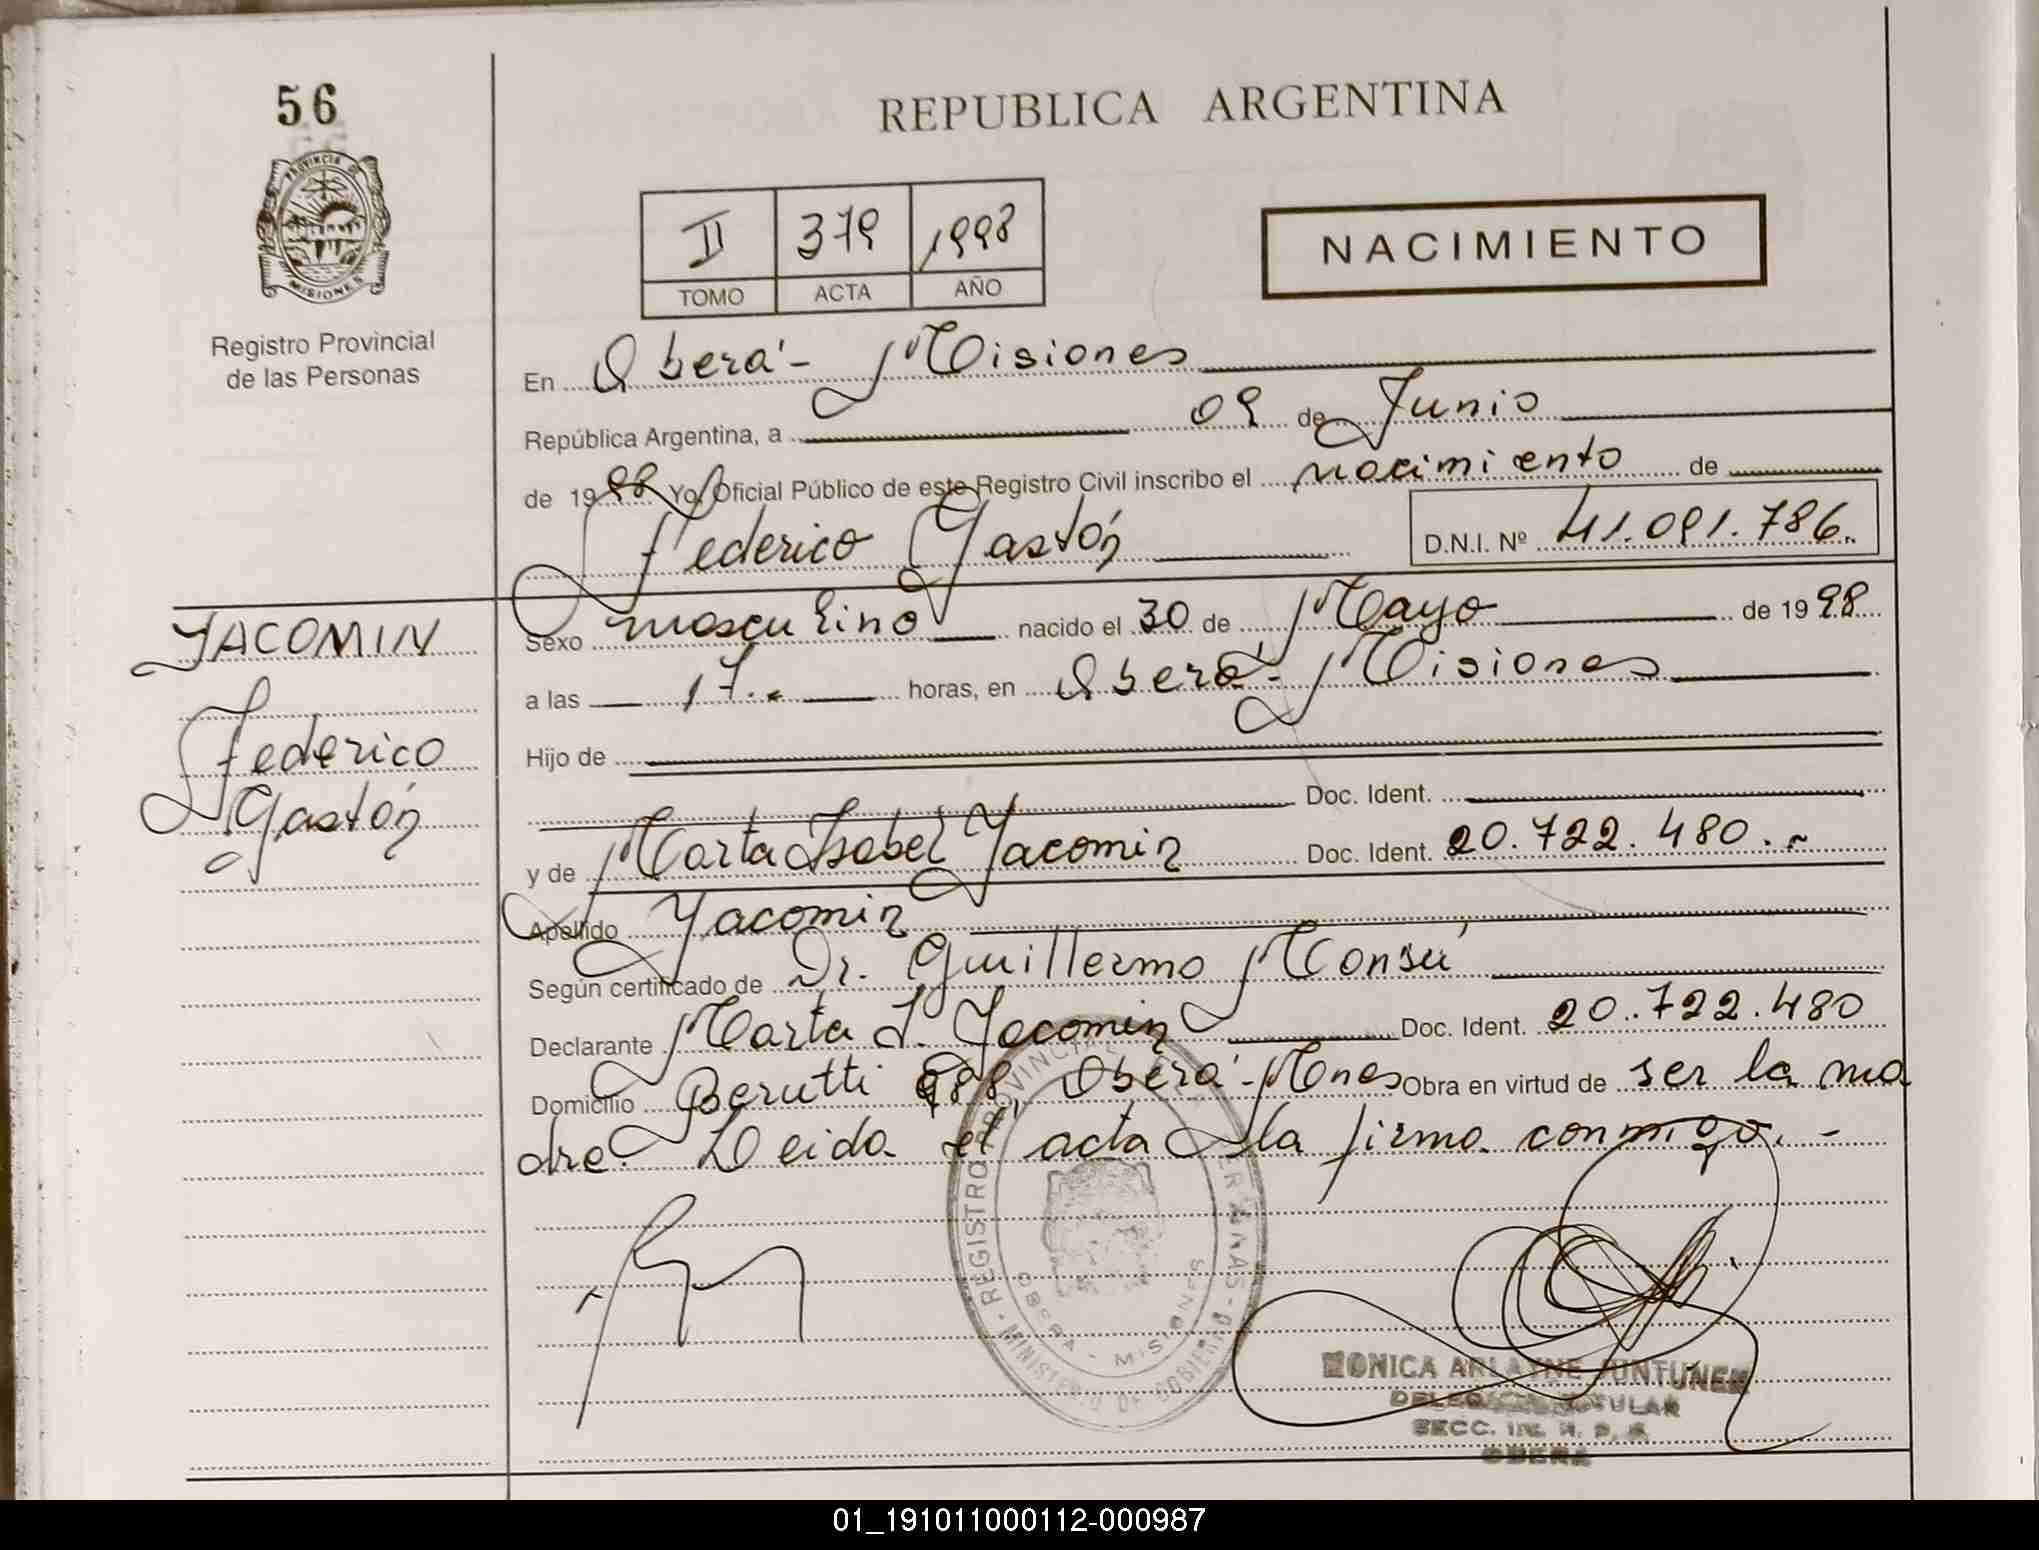 56
REPUBLICA ARGENTINA
PROVINCIA DE
MISIONES
Registro Provincial
de las Personas
II 379 1998
TOMO ACTA AÑO
NACIMIENTO
En Oberá - Misiones
República Argentina, a 09 de Junio
de 1998 Yo, Oficial Público de este Registro Civil inscribo el nacimiento de
Federico Gastón D.N.I. Nº 41.091.786.
YACOMIN
Federico
Gastón
Sexo masculino nacido el 30 de Mayo de 1998
a las 17.- horas, en Oberá - Misiones
Hijo de
Doc. Ident.
y de Marta Isabel Yacomin Doc. Ident. 20.722.480.-
Apellido Yacomin
Según certificado de Dr. Guillermo Monsú
Declarante Marta I. Yacomin Doc. Ident. 20.722.480
Domicilio Berutti 988, Oberá - Mnes Obra en virtud de ser la ma
dre. Leida el acta la firma conmigo. -
REGISTRO PROVINCIAL
OBERA - MISIONES
MINISTERIO DE GOBIERNO
MONICA ARLAYNE JUNTUNEN
TITULAR
SECC.
OBERA
01_191011000112-000987